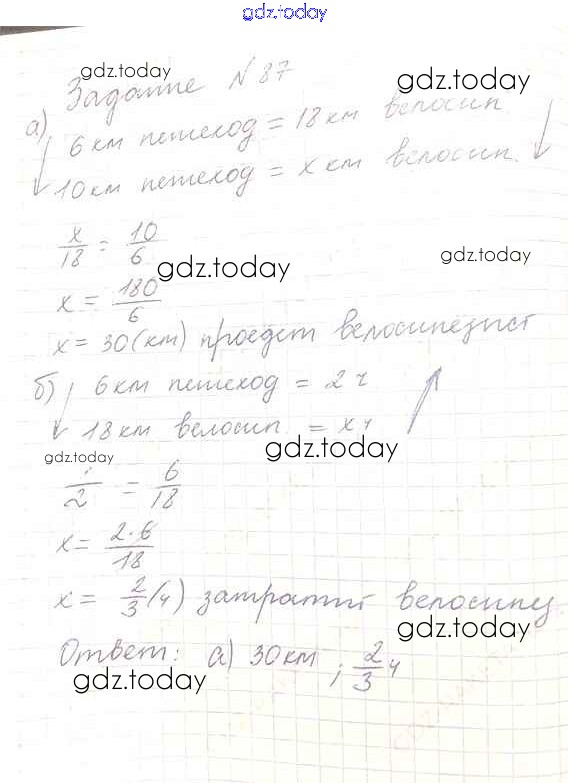 gdz.today
gdz.today
gdz.today
Задание N 87
а) 6 км пешеход = 18 км велосип.
10 км пешеход = x км велосип.
x/18 = 10/6
gdz.today
gdz.today
x = 180/6
x = 30 (км) проедет велосипедист
б) 6 км пешеход = 2 ч
18 км велосип = x ч
gdz.today
gdz.today
/2 = 6/18
x = 2·6/18
x = 2/3 (ч) затратит велосипед
gdz.today
Ответ: а) 30 км ; 2/3 ч
gdz.today